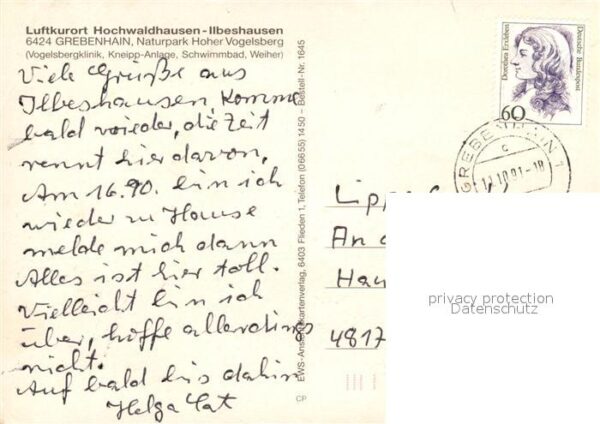 Luftkurort Hochwaldhausen-Ilbeshausen
6424 GREBENHAIN, Naturpark Hoher Vogelsberg
(Vogelsbergklinik, Kneipp-Anlage, Schwimmbad, Weiher)
Viele Grüße aus
Ilbeshausen, Komme
bald wieder, die Zeit
rennt hier davon,
Am 16.90. bin ich
wieder zu Hause
melde mich dann
Alles ist hier toll.
Vielleicht bin ich
über, hoffe allerdings
nicht.
Auf bald bis dahin
Helga
EWS-Ansichtkartenverlag, 6403 Flieden 1, Telefon (06655) 1450 - Bestell-Nr. 1645
CP
Dorothea Erxleben
Deutsche Bundespost
60
GREBENHAIN 1
c
-18
An
Hau
4817
privacy protection
Datenschutz